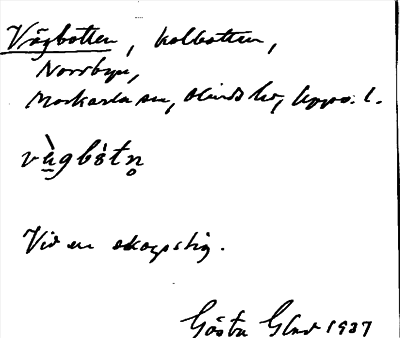 Vägbotten, kolbotten,
Norrbyn,
Morkarla sn, Olands hd, Upps. l.
vàgbótn̥
Vid en skogsstig.
Gösta Glad 1937